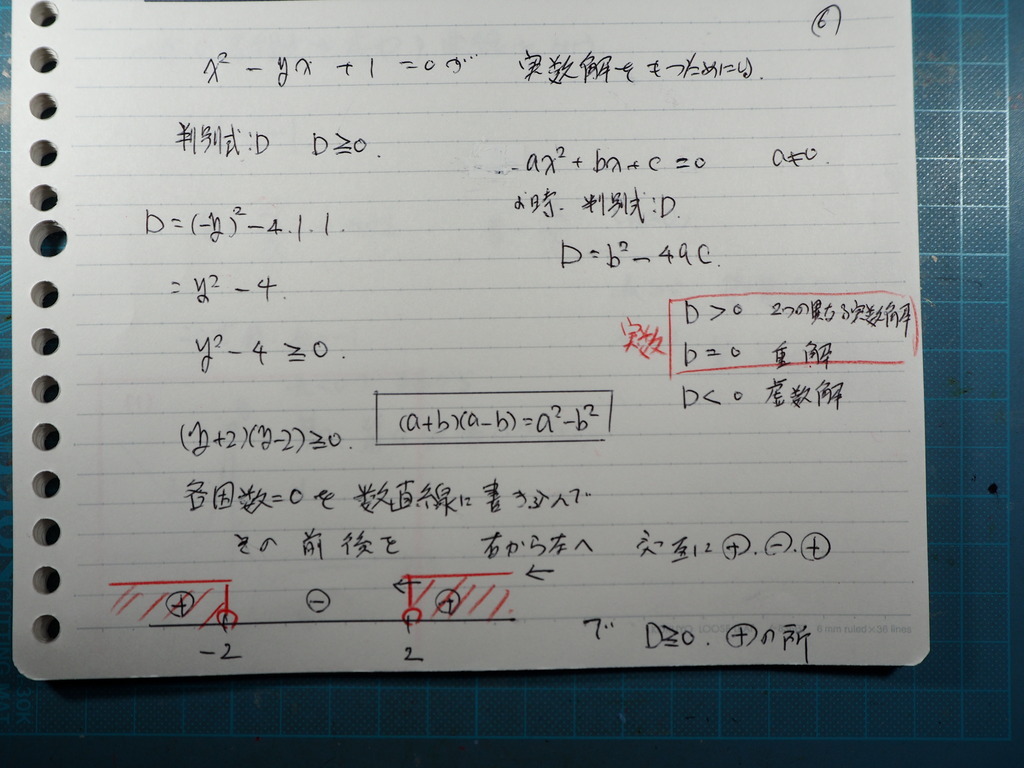 ⑥
x² - yx + 1 = 0 が 実数解をもつためには.
判別式:D D≧0.
ax² + bx + c = 0 a≠0.
の時. 判別式:D.
D = (-y)² - 4・1・1.
D = b² - 4ac.
= y² - 4.
実数
D > 0 2つの異なる実数解
D = 0 重解
D < 0 虚数解
y² - 4 ≧ 0.
(y+2)(y-2)≧0.
(a+b)(a-b) = a² - b²
各因数=0を 数直線に書き込んで
その 前後を 右から左へ 交互に ⊕.⊖.⊕
⊕ ⊖ ⊕
-2 2
で D≧0. ⊕の所
6 mm ruled×36 lines